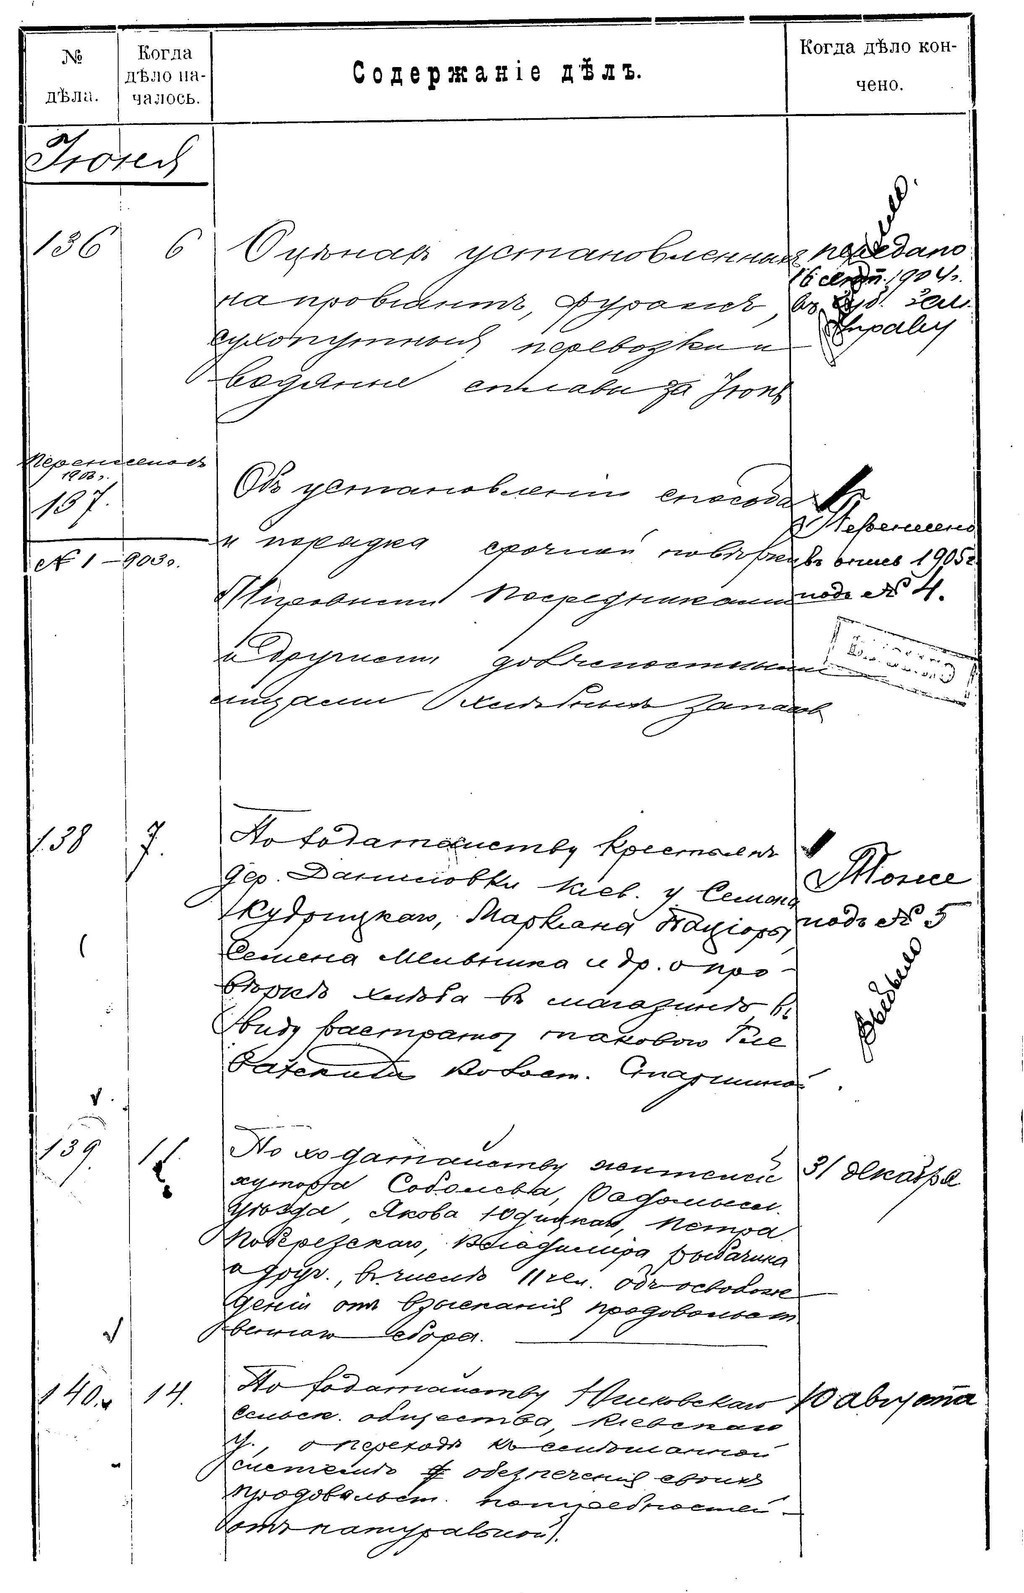 №
дѣла.
Когда
дѣло на-
чалось.
Содержаніе дѣлъ.
Когда дѣло кон-
чено.
Іюня
136 6 О цѣнахъ установленныхъ
на провіантъ, фуражъ,
сухопутныя перевозки и
водяные сплавы за Іюнь
передано
16 сент. 1904 г.
въ Губ. Зем.
Управу
Перенесенъ
1903 г.
137.
№ 1 – 903 г.
Объ установленіи способа
и порядка срочной повѣрки
Мировыми Посредниками
и другими должностными
лицами хлѣбныхъ запасовъ
Перенесено
въ опись 1905 г.
подъ № 4.
138 7. По ходатайству крестьянъ
дер. Даниловки Кіев. у Семена
Кудрицкаго, Маркіана
Семена Мельника и др. о про-
вѣркѣ хлѣба въ магазинѣ, въ
виду растраты таковаго Гле
вахскимъ Волост. Старшиной
Тоже
подъ № 5
Выбыло
139. 11. По ходатайству жителей
хутора Соболева, Радомысл.
уѣзда, Якова Юдицкаго, Петра
Поберезскаго, Владиміра Рыбачика
и друг., въ числѣ 11 чел. объ освобож
деніи отъ взысканія продовольст
веннаго сбора.
31 декабря
140. 14. По ходатайству Юнковскаго
сельск. общества, Кіевскаго
у., о переходѣ къ смѣшанной
системѣ обезпеченія своихъ
продовольст. потребностей
отъ натуральной.
10 августа